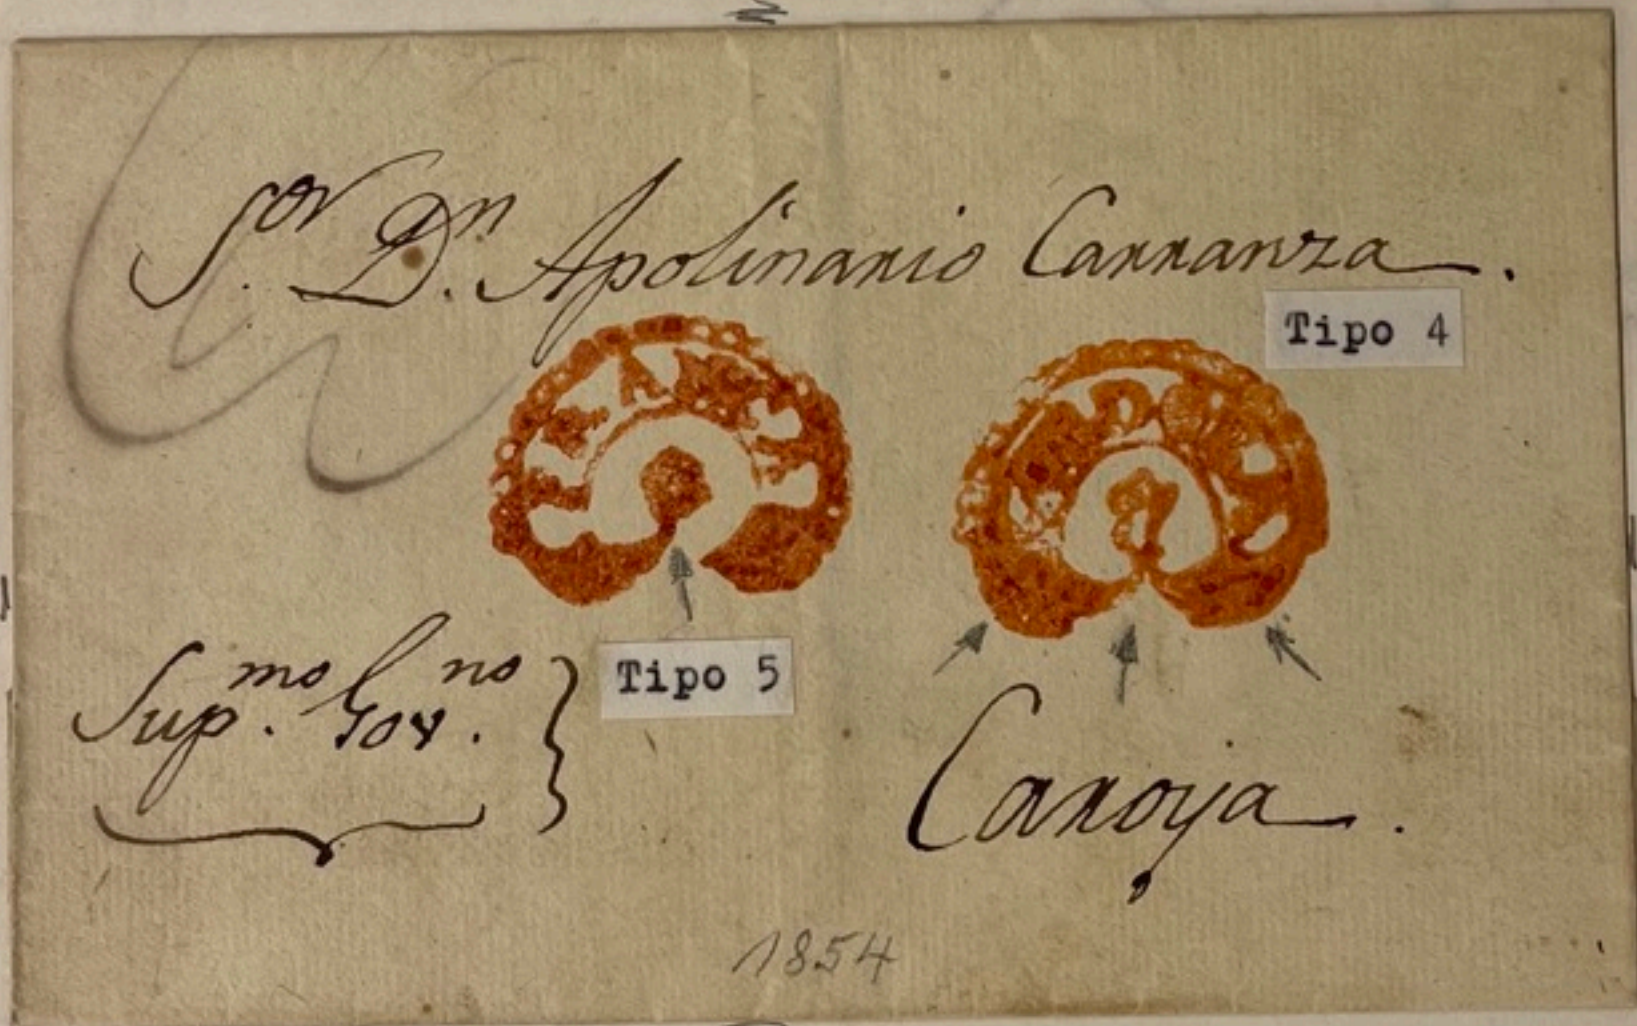 S.or D.n Apolinario Carranza.
Tipo 4
Tipo 5
Sup.mo Gov.no
Caroya.
1854